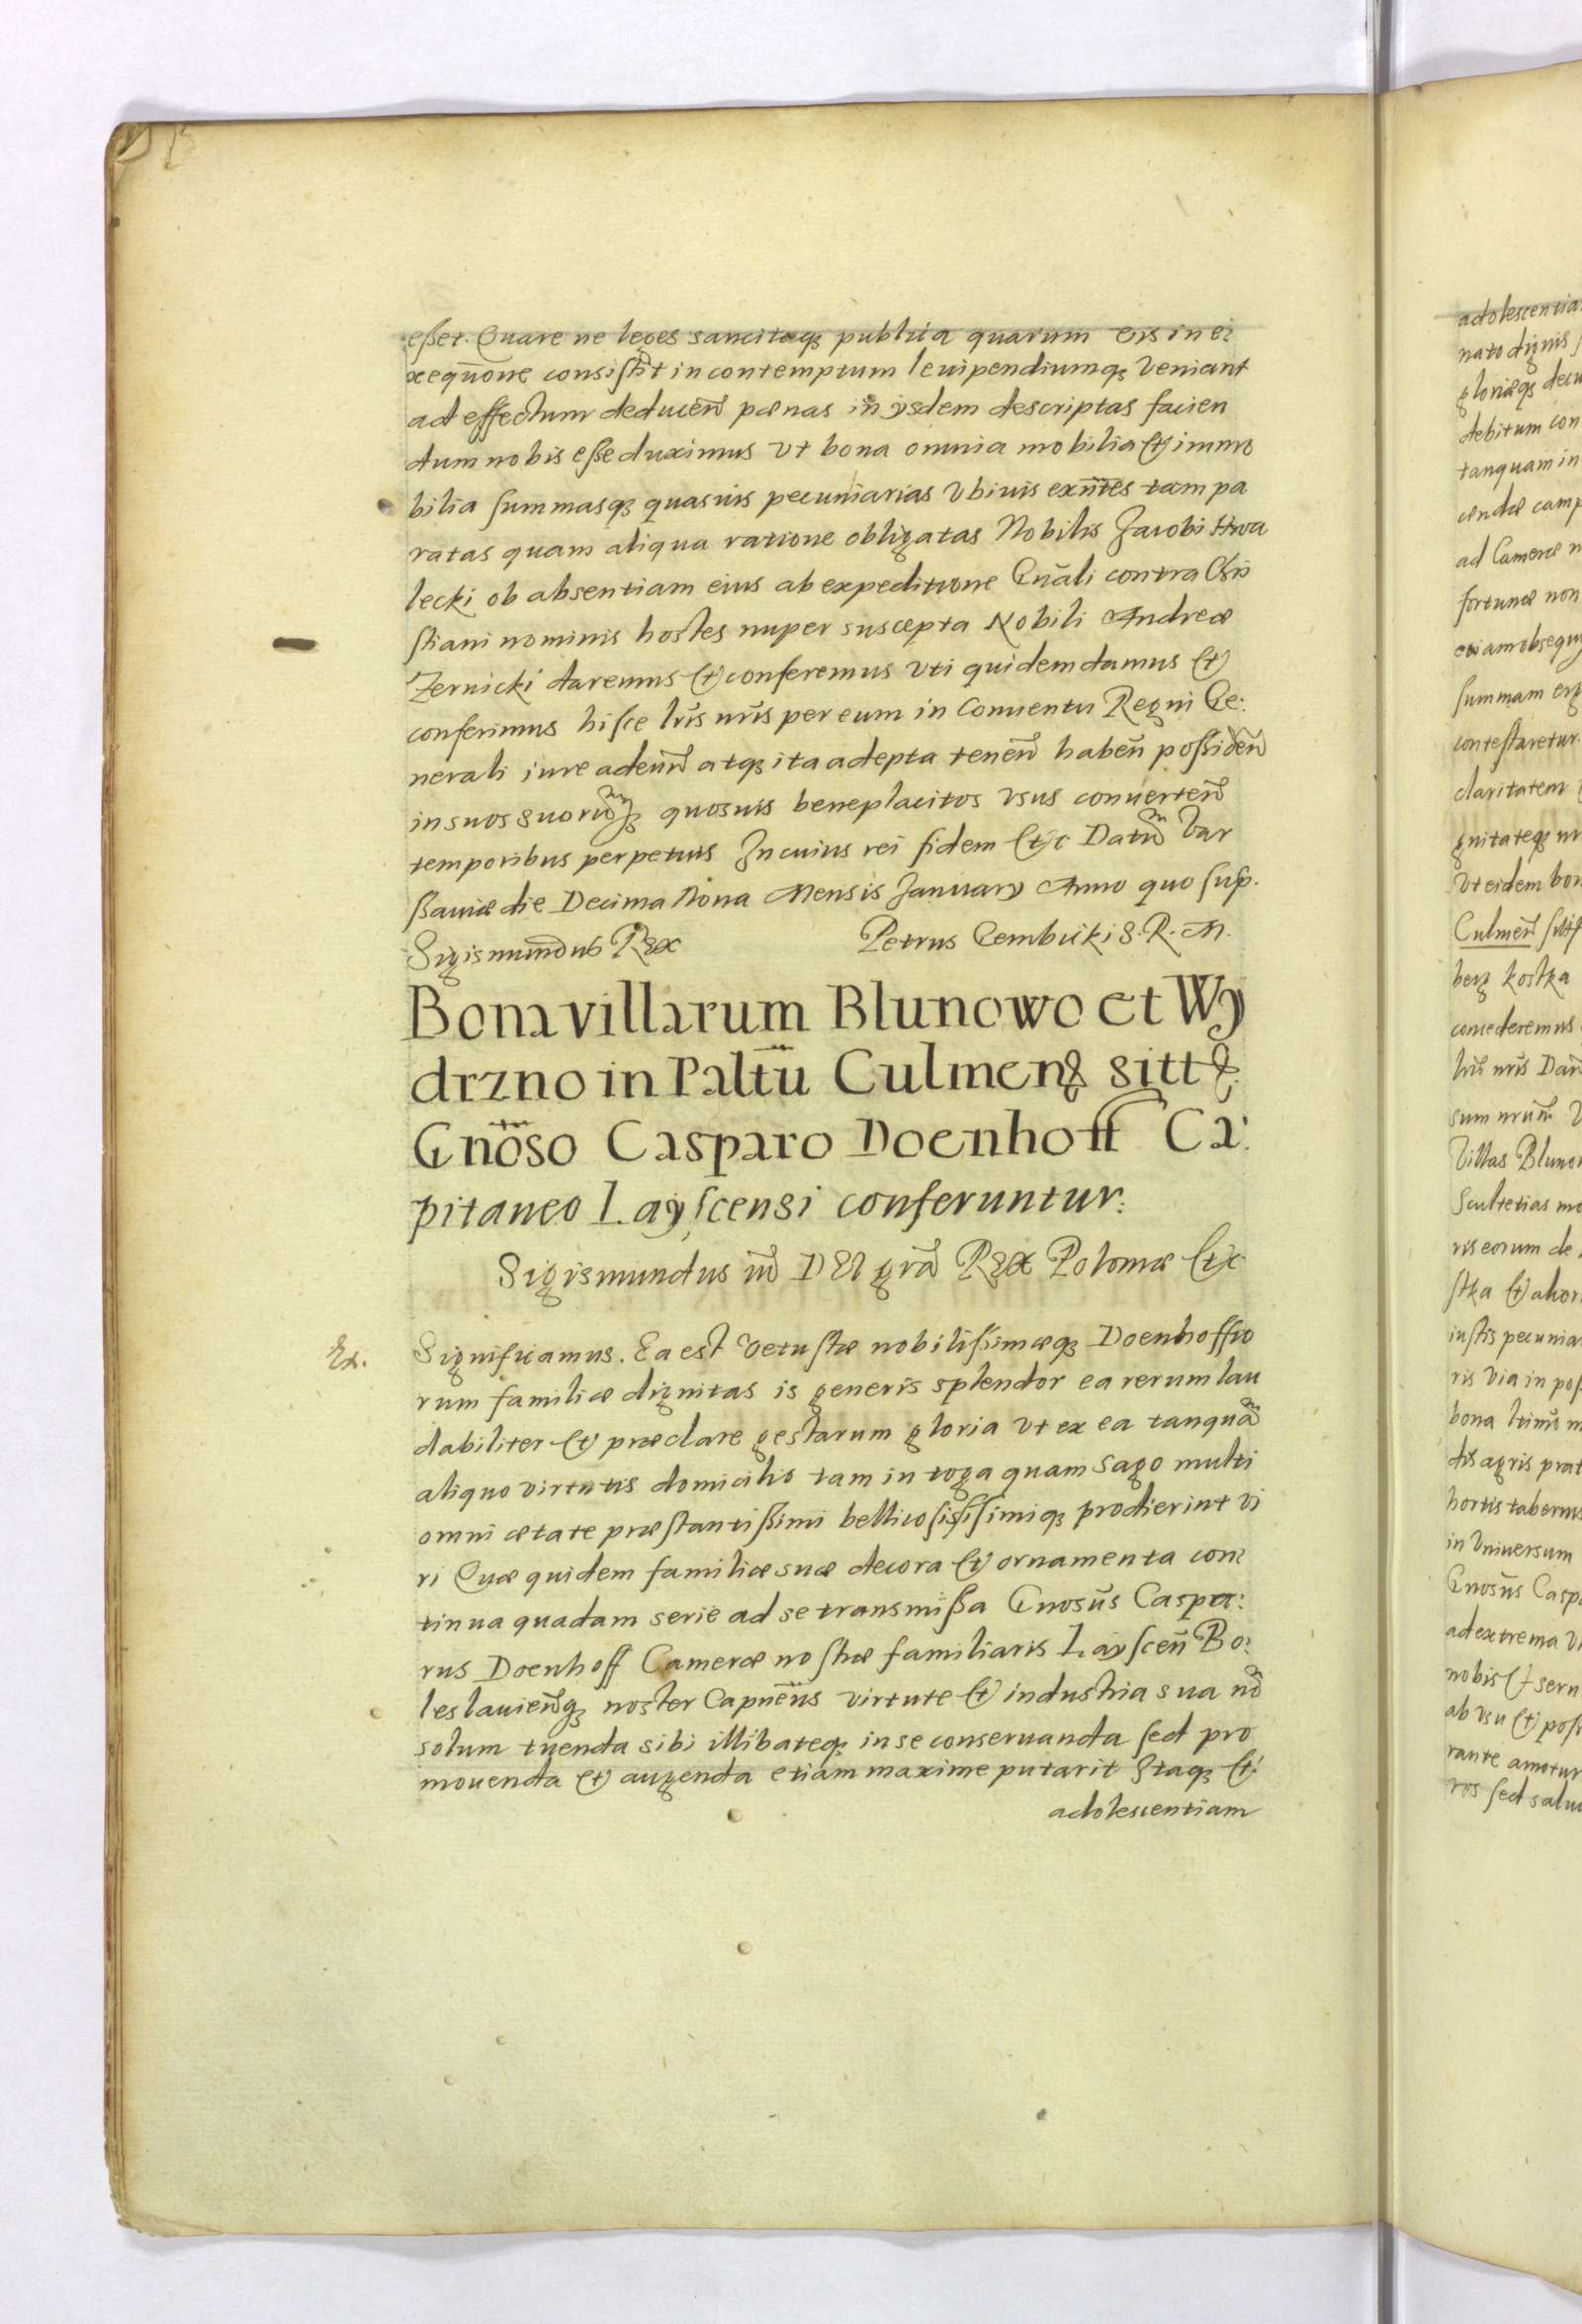 esset. Quare ne leges sancitaq₃ publica quarum vis in e:
xeqũone consistit in contemptum levipendiumq₃ veniant
ad effectum deducen̄ pænas in ysdem descriptas facien
dum nobis esse duximus vt bona omnia mobilia et immo
bilia summasq₃ quasuis pecuniarias vbiuis exñtes tam pa
ratas quam aliqua ratione obligatas Nobilis Jacobi
lecki ob absentiam eius ab expeditione Gnãli contra Chri
stiani nominis hostes nuper suscepta Nobili Andreæ
Zernicki daremus et conferemus vti quidem damus et
conferimus hisce lr̃is nr̃is per eum in Conuentu Regni Ge:
nerali iure adeun̄ atq₃ ita adepta tenen̄ haben̄ possiden̄
in suos suorũq₃ quosuis beneplacitos vsus conuerten̄
temporibus perpetuis In cuius rei fidem etc Datũ Var
ssauiæ die Decima Nona Mensis January Anno quo sup.
Sigismundus Rex Petrus Gembicki S. R. M.
Bona villarum Blunowo et Wy
drzno in Paltũ Culmen₈ sitt₈
Gnõso Casparo Doenhoff Ca:
pitaneo Layscensi conferuntur:
Sigismundus iii͂ DEI grã Rex Poloniæ etc
Ex. Significamus. Ea est vetustæ nobilissimæq₃ Doenhoffio
rum familiæ dignitas is generis splendor ea rerum lau
dabiliter et præclare gestarum gloria vt ex ea tanquã
aliquo virtutis domicilio tam in toga quam sago multi
omni ætate præstantissimi bellicosissisimiq₃ prodierint vi
ri Quæ quidem familiæ suæ decora et ornamenta con:
tinua quadam serie ad se transmissa Gnosũs Caspa:
rus Doenhoff Cameræ nostræ familiaris Layscen̄ Bo:
leslauien̄q₃ noster Capnẽus virtute et industria sua nõ
solum tuenda sibi illibateq₃ in se conseruanda sed pro
mouenda et augenda etiam maxime putarit Itaq₃ et
adolescentiam
adolescentia
nato dignis
gloriæq₃ decu
debitum con
tanquam in
endæ camp
ad Cameræ n
fortunæ non
etiam obsequy
summam erg
contestaretur.
claritatem
gnitateq₃ nr
vt eidem bon
Culmen̄ sitt
berg Kostka
concederemus
lr̃is nr̃is Dan̄
sum nrũm V
Villas Bluno
Scultetias mo
ris eorum de
stka et ahor
iustis pecunia
ris via in pos
bona ltimũs m
dis agris prat
hortis tabernis
in Vniuersum
Gnosũs Casp
ad extrema vi
nobis et seru
ab vsu et poss
rante amotur
ros sed saluu